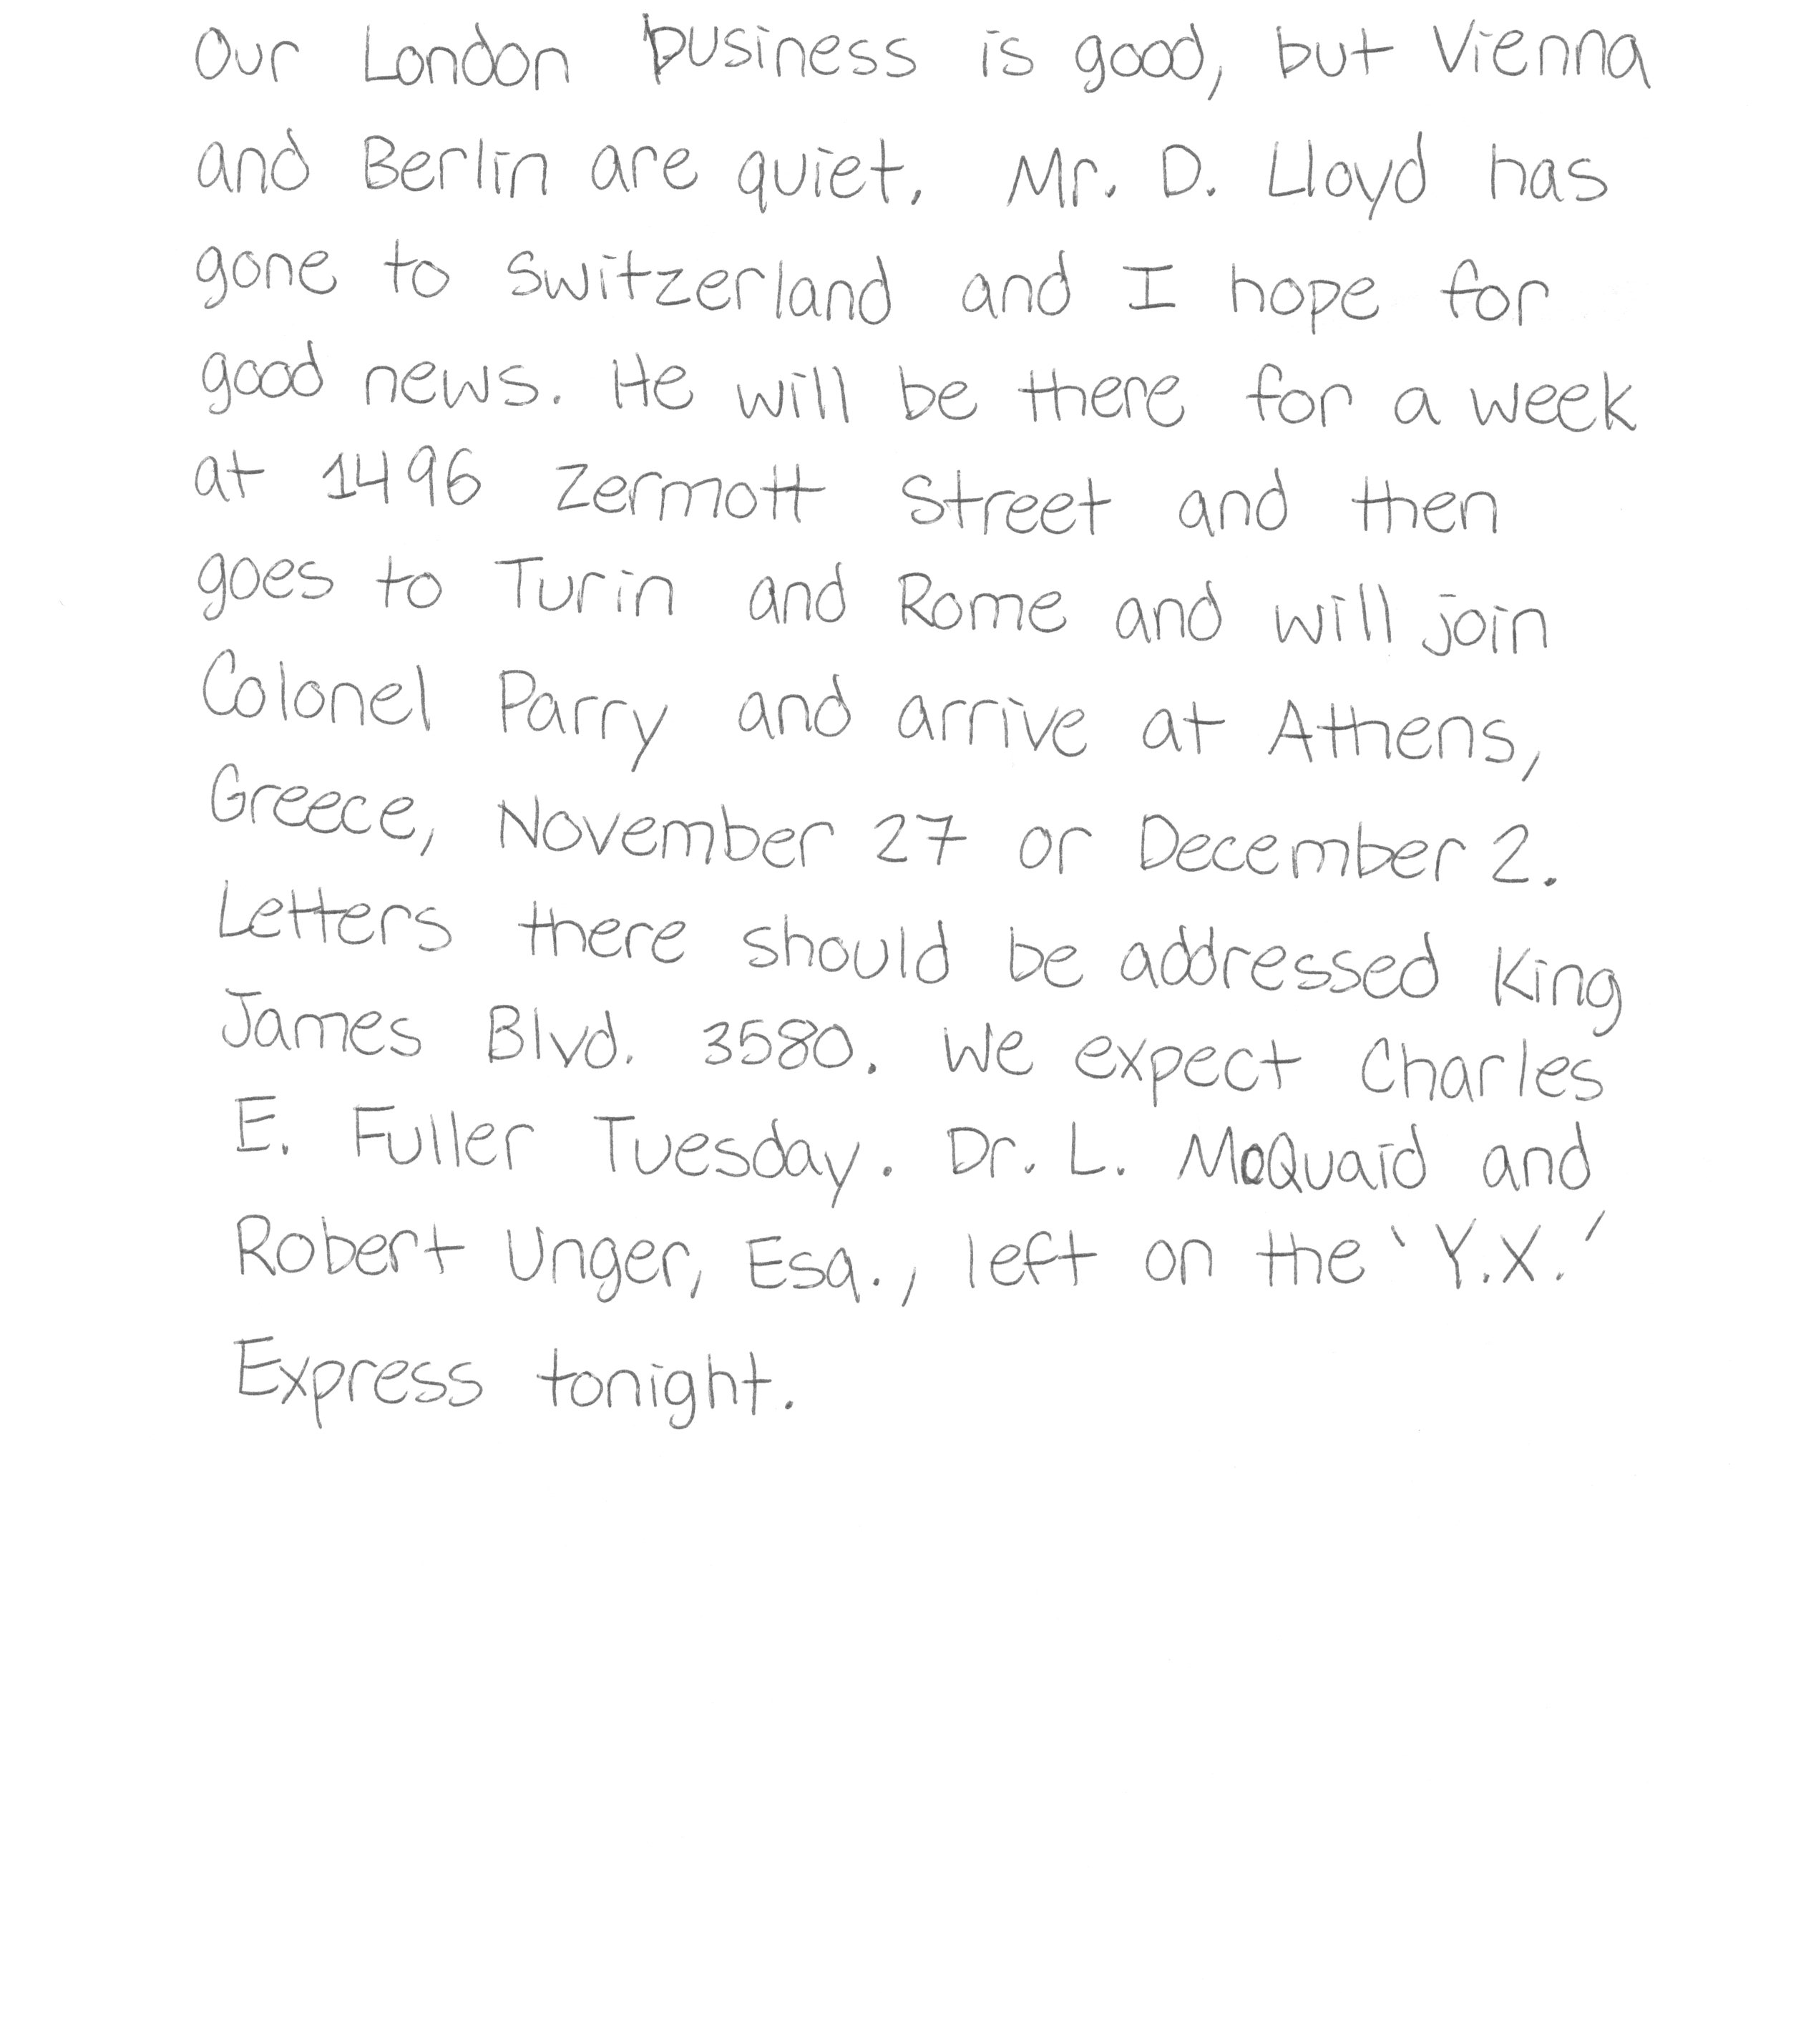 Our London business is good, but Vienna
and Berlin are quiet. Mr. D. Lloyd has
gone to Switzerland and I hope for
good news. He will be there for a week
at 1496 Zermott Street and then
goes to Turin and Rome and will join
Colonel Parry and arrive at Athens,
Greece, November 27 or December 2.
Letters there should be addressed King
James Blvd. 3580. We expect Charles
E. Fuller Tuesday. Dr. L. McQuaid and
Robert Unger, Esq., left on the 'Y.X.'
Express tonight.